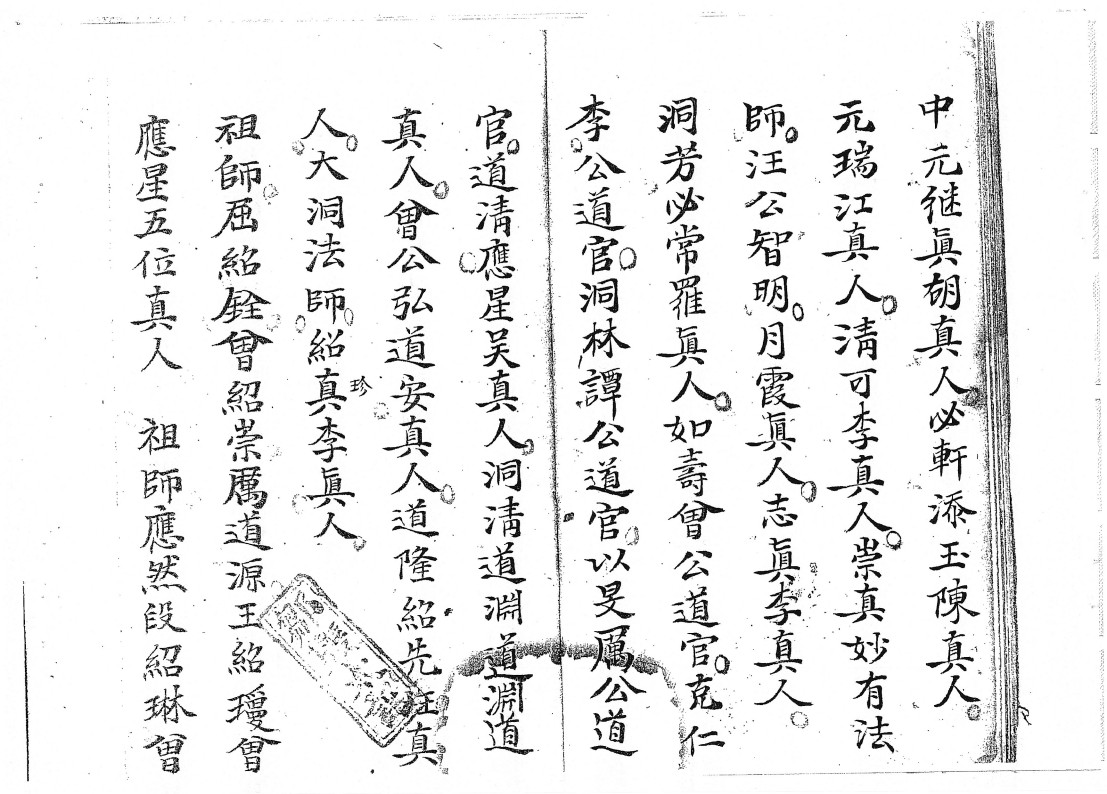 中元継眞胡真人必軒添玉陳真人
元瑞江真人淸可李真人崇真妙有法
師汪公智明月霞眞人志眞李真人
洞芳必常羅眞人如壽曾公道官克仁
李公道官洞林譚公道官以旻厲公道
官道淸應星吴真人洞淸道淵道淵道
真人曾公弘道安真人道隆紹先汪真
人大洞法師紹真珍李眞人
祖師屈紹銓曾紹崇厲道源王紹璦曾
應星五位真人 祖師應然段紹琳曾